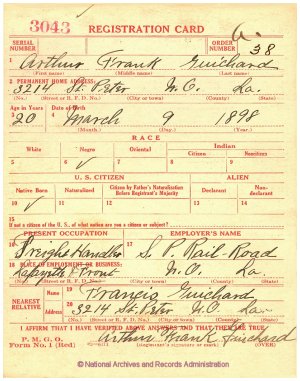 3043 REGISTRATION CARD
SERIAL NUMBER ORDER NUMBER 38
1 Arthur Frank Guichard
(First name) (Middle name) (Last name)
2 PERMANENT HOME ADDRESS:
3214 St. Peter N.O. La.
(Street or R. F. D. No.) (City or town) (County) (State)
Age in Years Date of Birth
3 20 4 March 9 1898
(Month.) (Day.) (Year.)
RACE
White Negro Oriental Indian
Citizen Noncitizen
5 6 ✓ 7 8 9
U. S. CITIZEN ALIEN
Native Born Naturalized Citizen by Father's Naturalization Before Registrant's Majority Declarant Non-declarant
10 ✓ 11 12 13 14
15
If not a citizen of the U. S., of what nation are you a citizen or subject?
PRESENT OCCUPATION EMPLOYER'S NAME
16 Freight Handler 17 S. P. Rail-Road
18 PLACE OF EMPLOYMENT OR BUSINESS:
Lafayette & Front N.O. La.
(Street or R. F. D. No.) (City or town) (County) (State)
NEAREST RELATIVE
Name 19 Francis Guichard
Address 20 3214 St. Peter N.O. La.
(Street or R. F. D. No.) (City or town) (County) (State)
I AFFIRM THAT I HAVE VERIFIED ABOVE ANSWERS AND THAT THEY ARE TRUE
P. M. G. O.
Form No. 1 (Red) Arthur Frank Guichard
(Registrant's signature or mark) (OVER)
© National Archives and Records Administration